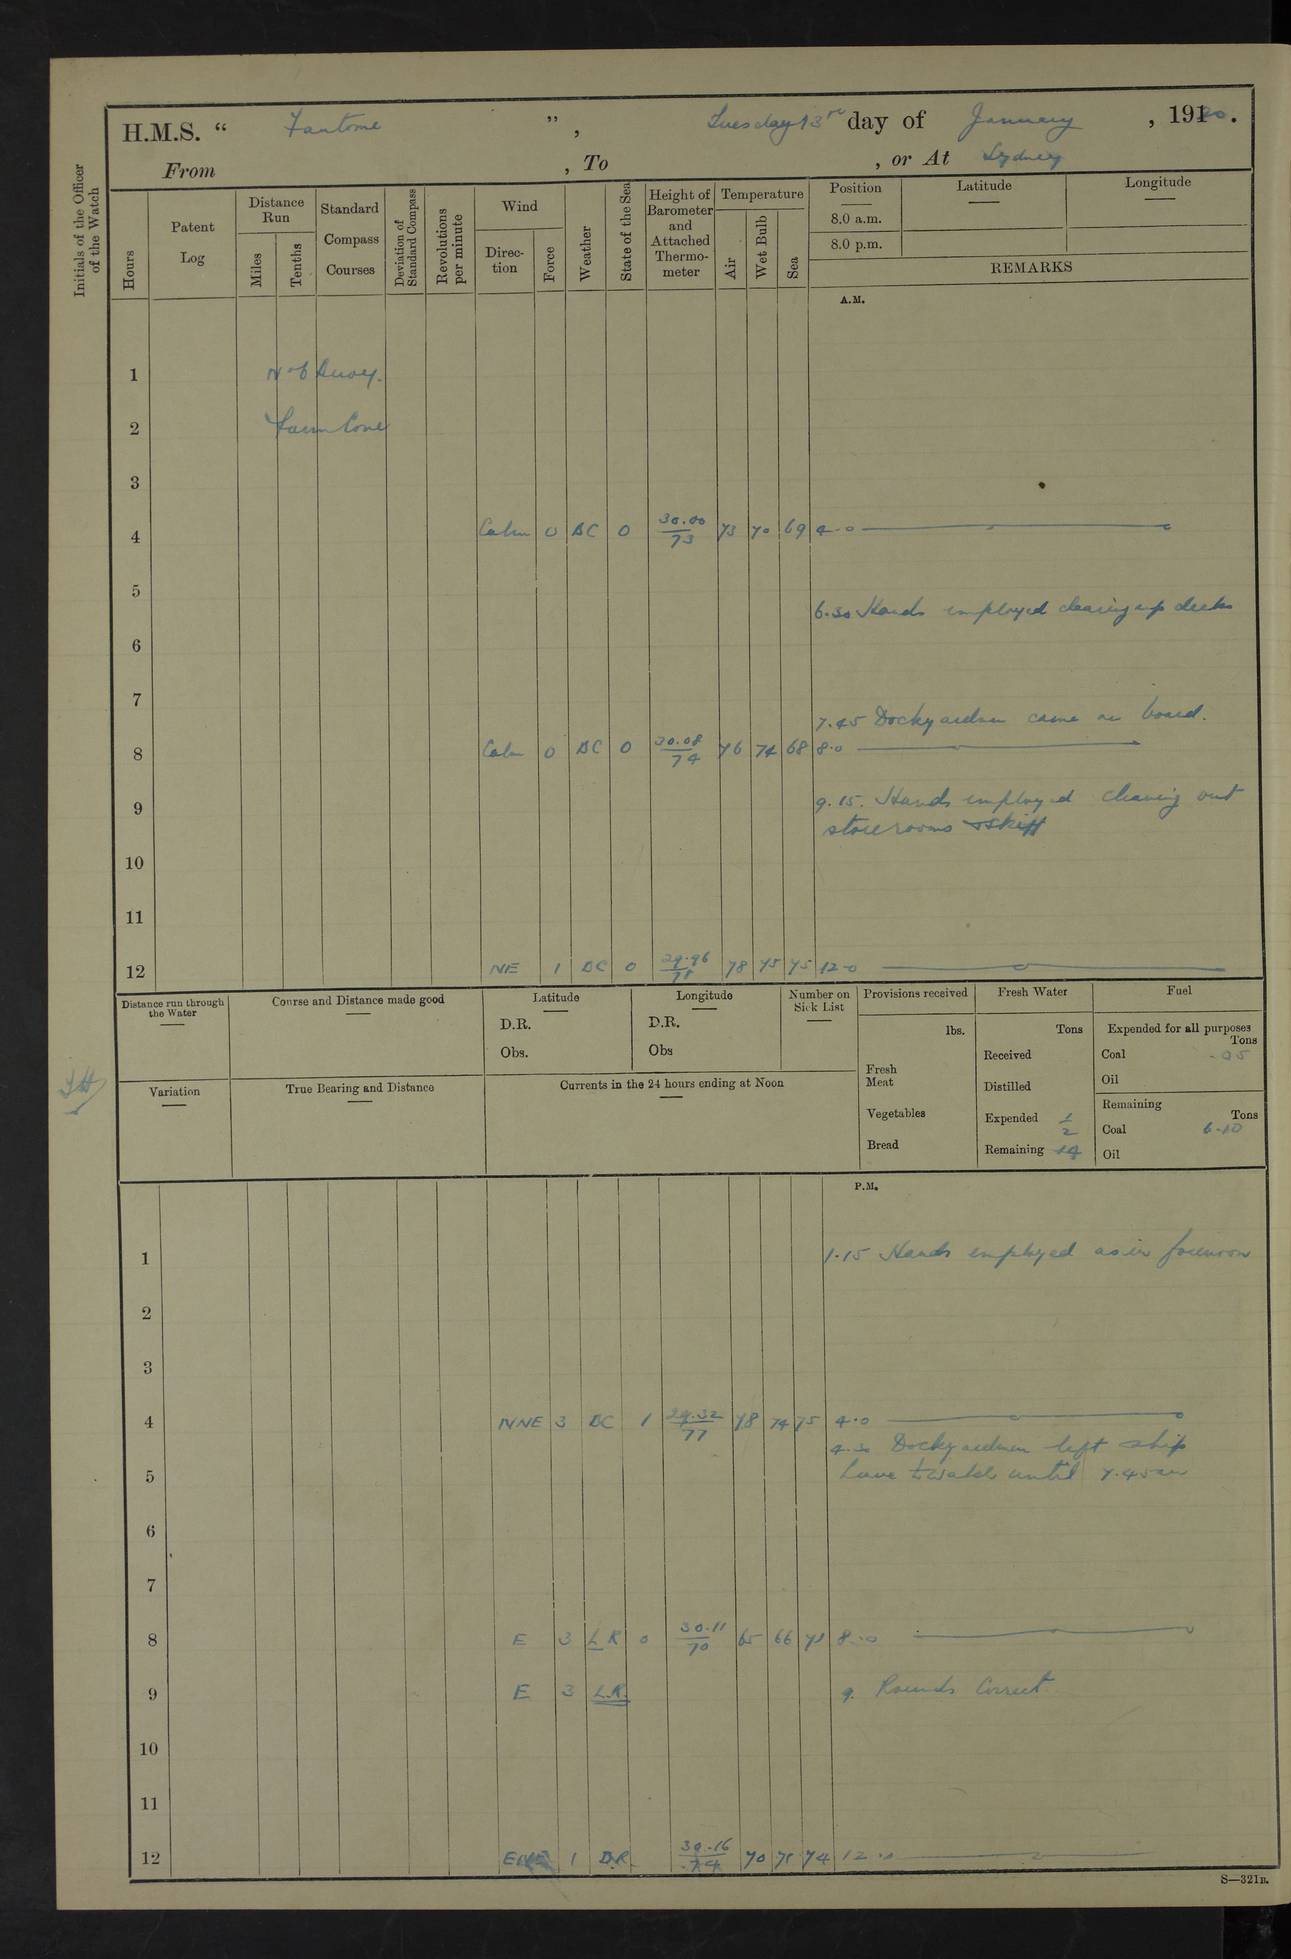 H.M.S. “ Fantome ”, Tuesday 13 day of January, 1920.
From , To , or At Sydney
Initials of the Officer of the Watch
Hours
Patent Log
Distance Run
Miles
Tenths
Standard Compass Courses
Deviation of Standard Compass
Revolutions per minute
Wind
Direction
Force
Weather
State of the Sea
Height of Barometer and Attached Thermometer
Temperature
Air
Wet Bulb
Sea
Position
8.0 a.m.
8.0 p.m.
Latitude
Longitude
REMARKS
A.M.
1 No 6 Buoy.
2 Farm Cove
3
4 Calm 0 BC 0 30.00/73 73 70 69 4.0
5
6.30 Hands employed clearing up decks
6
7
7.45 Dockyardmen came on board.
8 Calm 0 BC 0 30.08/74 76 74 68 8.0
9 9.15. Hands employed cleaning out
storerooms & skiff
10
11
12 NE 1 BC 0 29.96/78 78 75 75 12.0
Distance run through the Water
Course and Distance made good
Latitude
D.R.
Obs.
Longitude
D.R.
Obs
Number on Sick List
Provisions received
lbs.
Fresh Meat
Vegetables
Bread
Fresh Water
Tons
Received
Distilled
Expended 1/2
Remaining 14
Fuel
Expended for all purposes
Tons
Coal .05
Oil
Remaining
Tons
Coal 6.10
Oil
Variation
True Bearing and Distance
Currents in the 24 hours ending at Noon
P.M.
1 1.15 Hands employed as in forenoon
2
3
4 NNE 3 BC 1 29.32/77 78 74 75 4.0
4.30 Dockyardmen left ship
5 Leave to watch until 7.45 am
6
7
8 E 3 L R 0 30.11/70 65 66 8.0
9 E 3 L.R. 9. Rounds Correct.
10
11
12 1 30.16/74 70 74 12.0
S—321B.